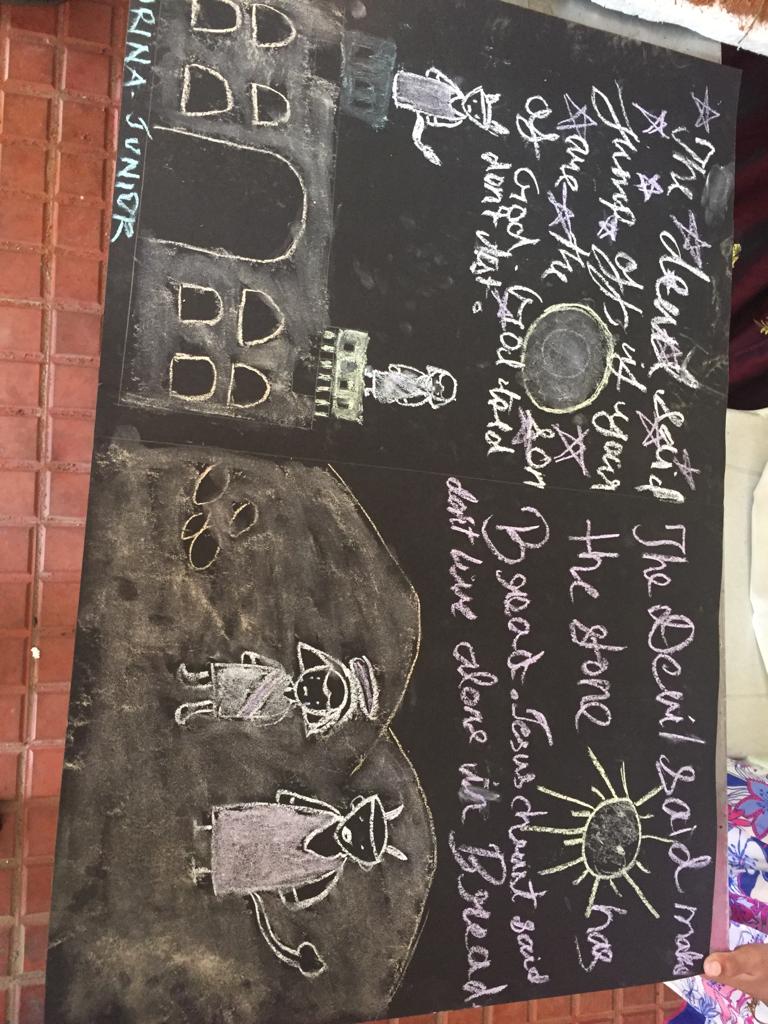 The devil said
Jump off if your
are the Son
of God. God told
The Devil said make
the stone has
Bread. Jesus said
don't live alone with Bread
JUNIOR